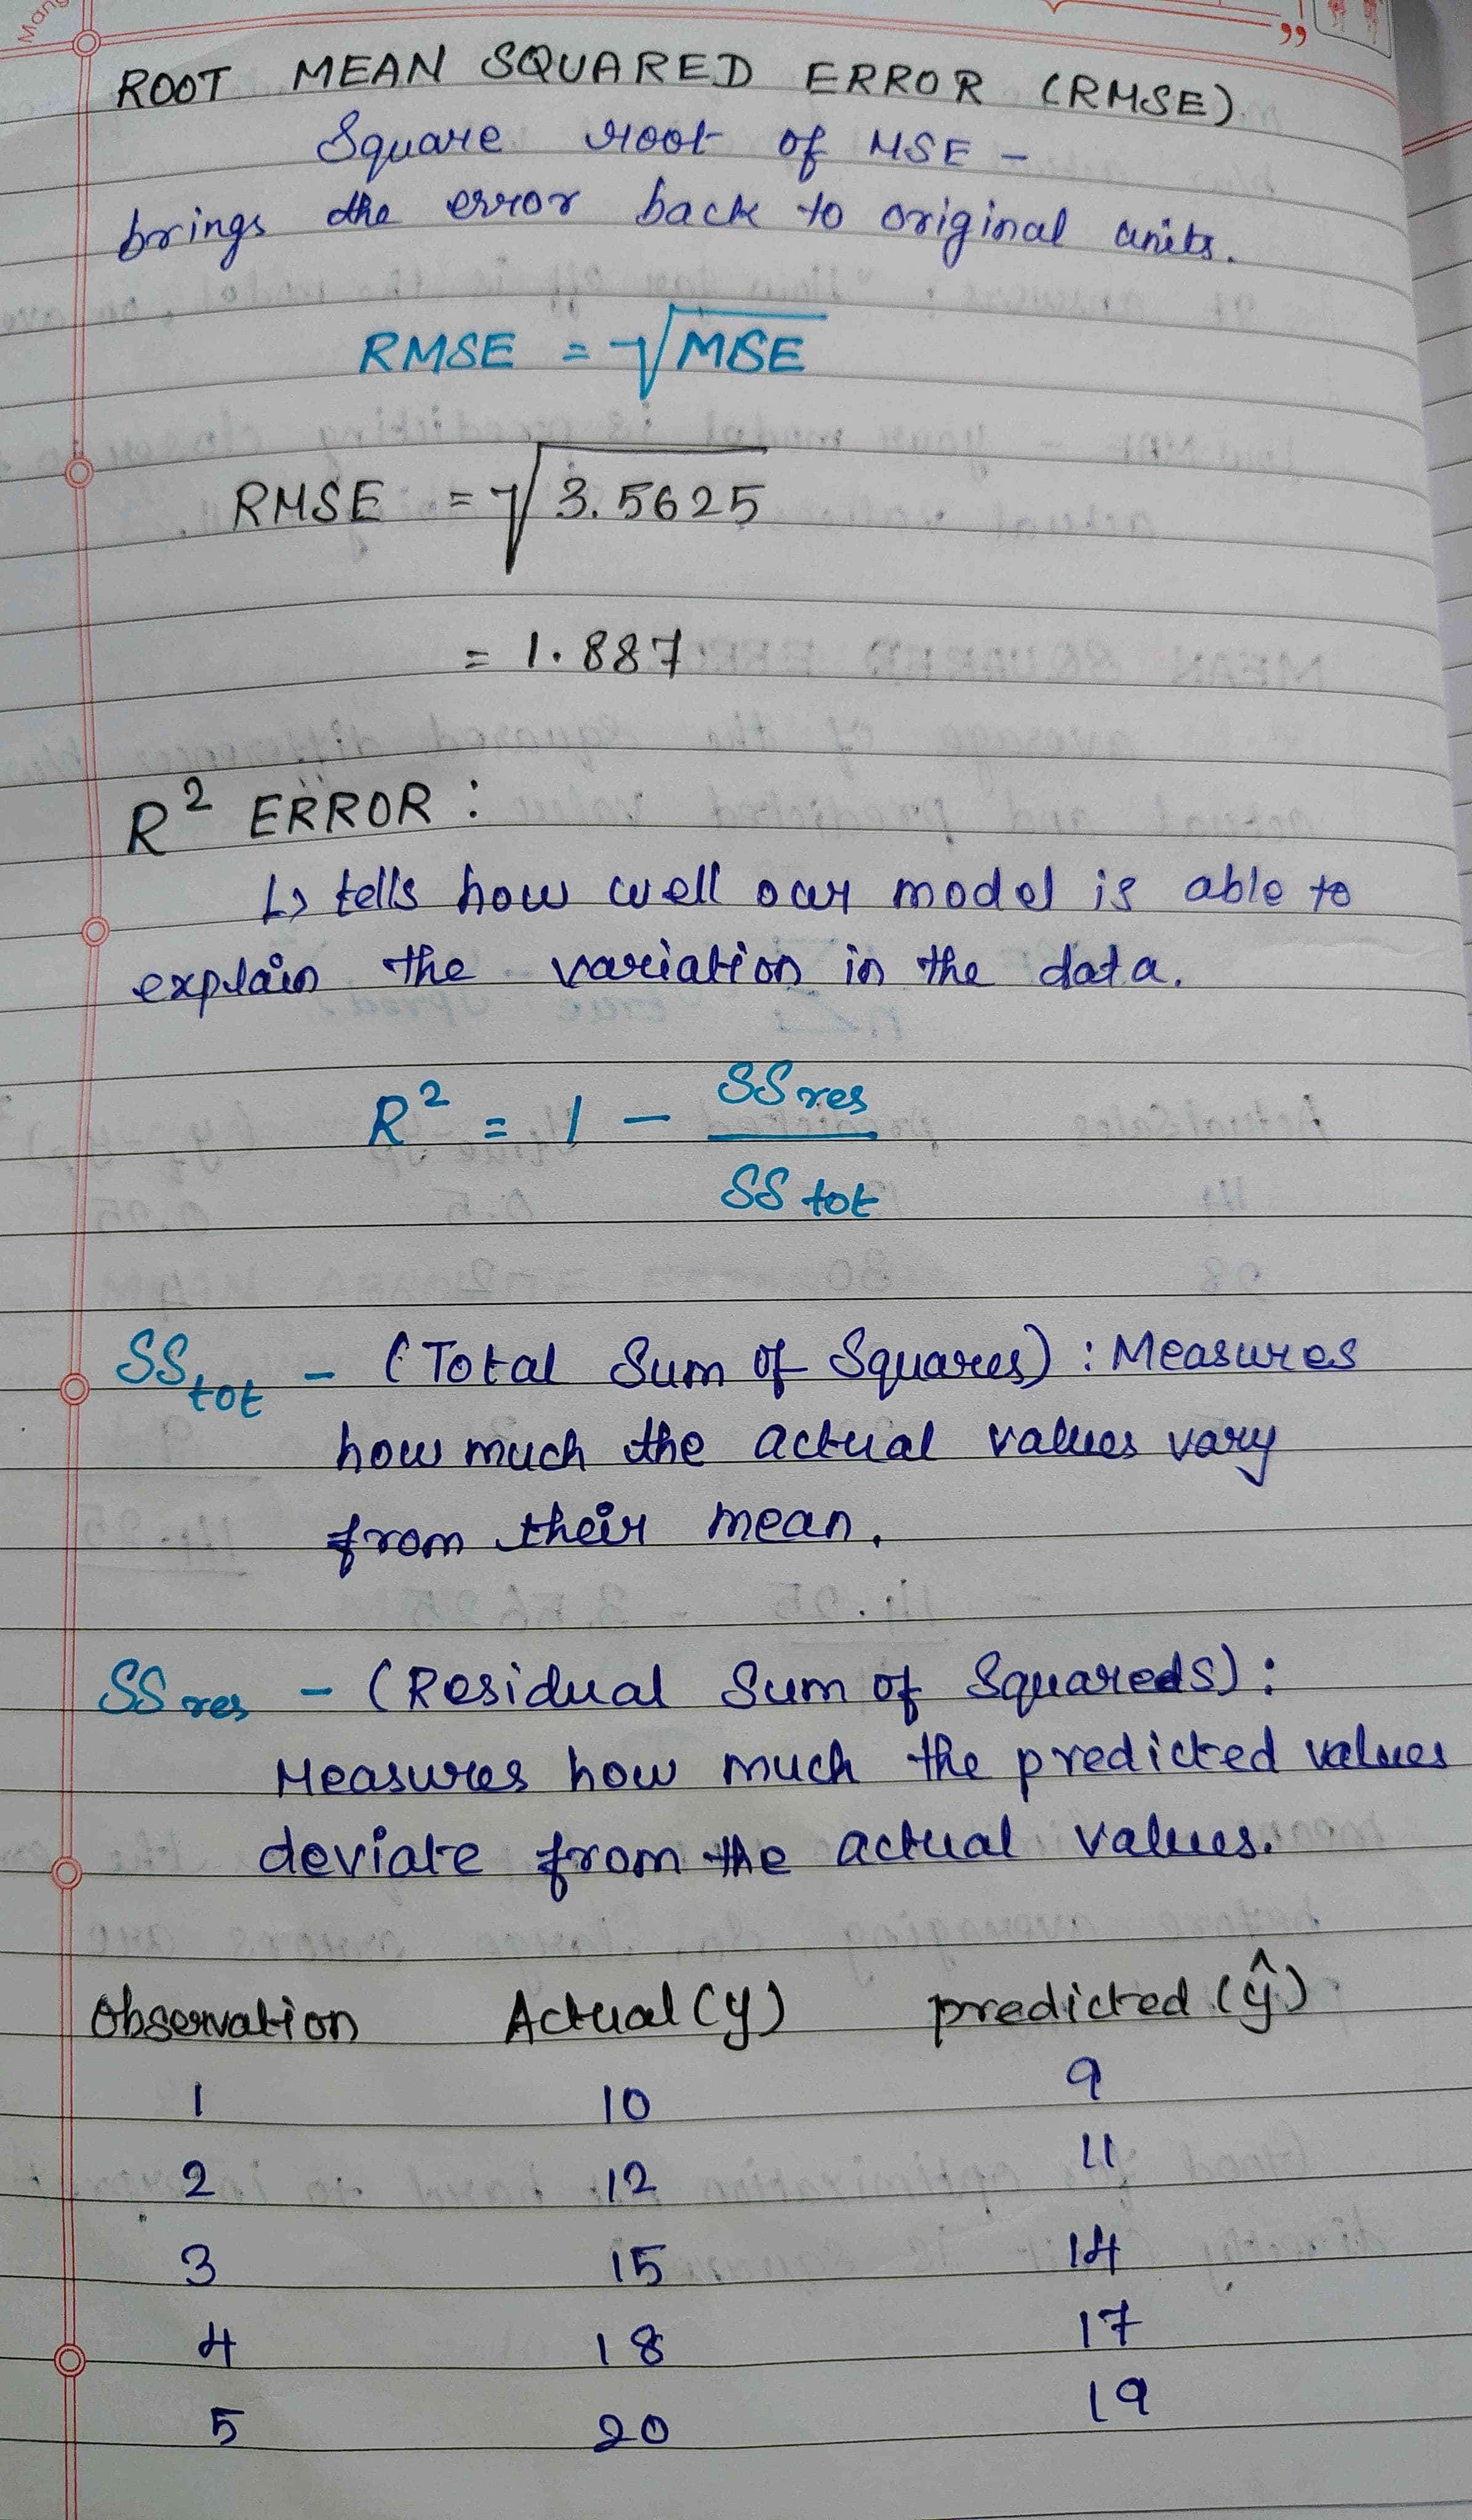 Mang
ROOT MEAN SQUARED ERROR (RMSE)
Square root of MSE -
brings the error back to original units.
RMSE = √MSE
RMSE = √3.5625
= 1.887
R² ERROR :
↳ tells how well our model is able to
explain the variation in the data.
R² = 1 - SSres
SStot
SStot - (Total Sum of Squares) : Measures
how much the actual values vary
from their mean.
SSres - (Residual Sum of Squareds) :
Measures how much the predicted values
deviate from the actual values.
Observation Actual (y) predicted (ŷ)
1 10 9
2 12 11
3 15 14
4 18 17
5 20 19